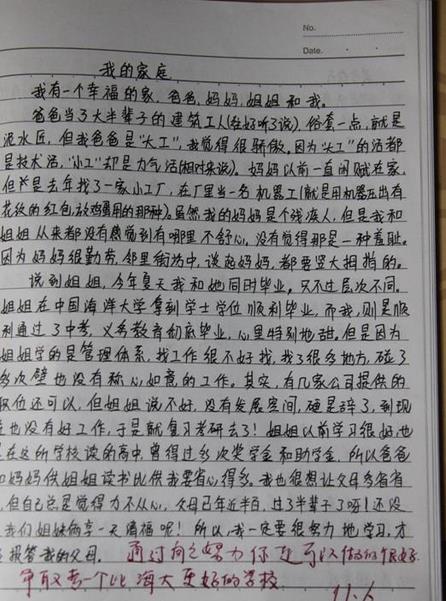 No.
Date.
我的家庭
我有一个幸福的家,爸爸,妈妈,姐姐和我。
爸爸当了大半辈子的建筑工人(在好听了说),俗套一点,就是
泥水匠,但我爸爸是"大工",我觉得很骄傲。因为"大工"的活都
是技术活,"小工"却是力气活(相对来说)。妈妈以前一直闲赋在家,
但是去年找了一家小工厂,在厂里当一名机器工(就是用机器压出有
花纹的红包,放鸡蛋用的那种)。虽然我的妈妈是个残疾人,但是我和
姐姐从来都没有感觉到有哪里不舒心,没有觉得那是一种羞耻。
因为妈妈很勤劳,邻里街坊中,谈起妈妈,都要竖大拇指的。
说到姐姐,今年夏天我和她同时毕业。只不过层次不同。
姐姐在中国海洋大学拿到学士学位顺利毕业,而我,则是顺
利通过了中考,义务教育彻底毕业,心里特别地甜。但是因为
姐姐学的是管理体系,找工作很不好找,找了很多地方,碰了
多次壁也没有称心如意的工作。其实,有几家公司提供的
职位还可以,但姐姐说不好,没有发展空间,硬是辞了,到现
在也没有好工作,于是就复习考研去了!姐姐以前学习很好,也
是在这所学校读的高中,曾得过多次奖学金和助学金,所以爸爸
和妈妈供姐姐读书比供我要省心得多。我也很想让父母多省省
心,但自己总是觉得力不从心,父母已年近半百,过了半辈子了呀!还没
我们姐妹俩享一天清福呢!所以,我一定要很努力地学习,才
报答我的父母。通过自己努力你是可以做的很好,
争取考一个比海大更好的学校。
11.6